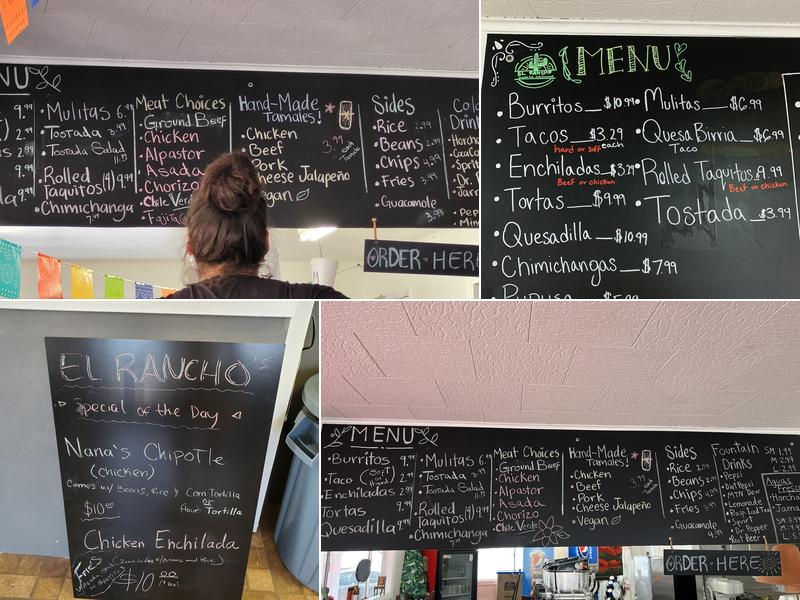 NU
9.99
2.99
2.99
9.99
9.99
• Mulitas 6.99
• Tostada 3.99
• Tostada Salad 11.99
• Rolled Taquitos (4) 9.99
• Chimichanga 7.99
Meat Choices
• Ground Beef
• Chicken
• Alpastor
• Asada
• Chorizo
• Chile Verde
• Fajita
Hand-Made Tamales!
• Chicken
• Beef
Pork
Cheese Jalapeño
Vegan
3.99 each Tamale
Sides
• Rice 2.99
• Beans 2.99
• Chips 4.99
• Fries 3.99
• Guacamole 3.99
Cold
Drin
ORDER HERE
EL RANCHO
MENU
• Burritos $10.99
• Tacos $3.29 each
hard or soft
• Enchiladas $3.29
Beef or chicken
• Tortas $9.99
• Quesadilla $10.99
• Chimichangas $7.99
Pupusa $5.99
• Mulitas $6.99
• QuesaBirria $6.99
Taco
• Rolled Taquitos 9.99
Beef or chicken
• Tostada $3.99
EL RANCHO's
Special of the Day
Nana's Chipotle
(chicken)
Comes w/ Beans, Rice & Corn Tortilla
or
flour Tortilla
$10
Chicken Enchilada
2 enchiladas w/Beans and Rice
$10.00
(+tax)
MENU
• Burritos 9.99
• Taco (Soft Hard) 2.99
• Enchiladas 2.99
Tortas 9.99
Quesadilla 9.99
• Mulitas 6.99
• Tostada 3.99
• Tostada Salad 11.99
• Rolled Taquitos (4) 9.99
• Chimichanga 7.99
Meat Choices
• Ground Beef
• Chicken
• Alpastor
• Asada
• Chorizo
• Chile Verde
Hand-Made Tamales!
• Chicken
• Beef
• Pork
• Cheese Jalapeño
• Vegan
3.99
Sides
• Rice 2.99
• Beans 2.99
• Chips 4.99
• Fries 3.99
• Guacamole 4.99
Fountain Drinks
SM 1.99
M 2.99
L 2.99
• Pepsi
• Diet Pepsi
• MTN Dew
• Lemonade
• Rasp Iced Tea
• Squirt
• Dr. Pepper
• Root Beer
Aguas Fresca
• Horcha
• Jama
ORDER HERE